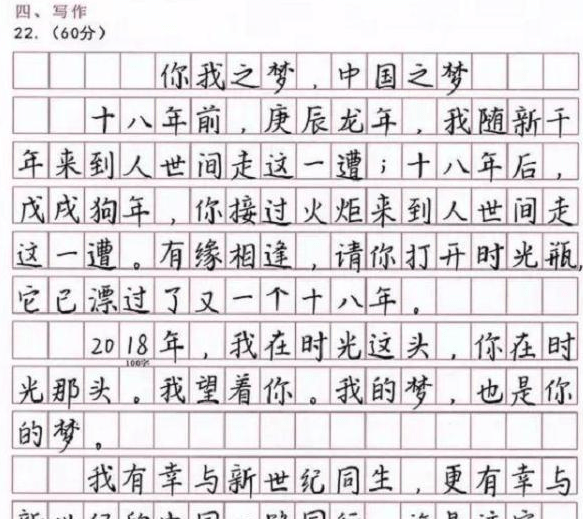 四、写作
22.（60分）
你我之梦，中国之梦
十八年前，庚辰龙年，我随新千
年来到人世间走这一遭；十八年后，
戊戌狗年，你接过火炬来到人世间走
这一遭。有缘相逢，请你打开时光瓶，
它已漂过了又一个十八年。
2018年，我在时光这头，你在时
100字
光那头。我望着你。我的梦，也是你
的梦。
我有幸与新世纪同生，更有幸与